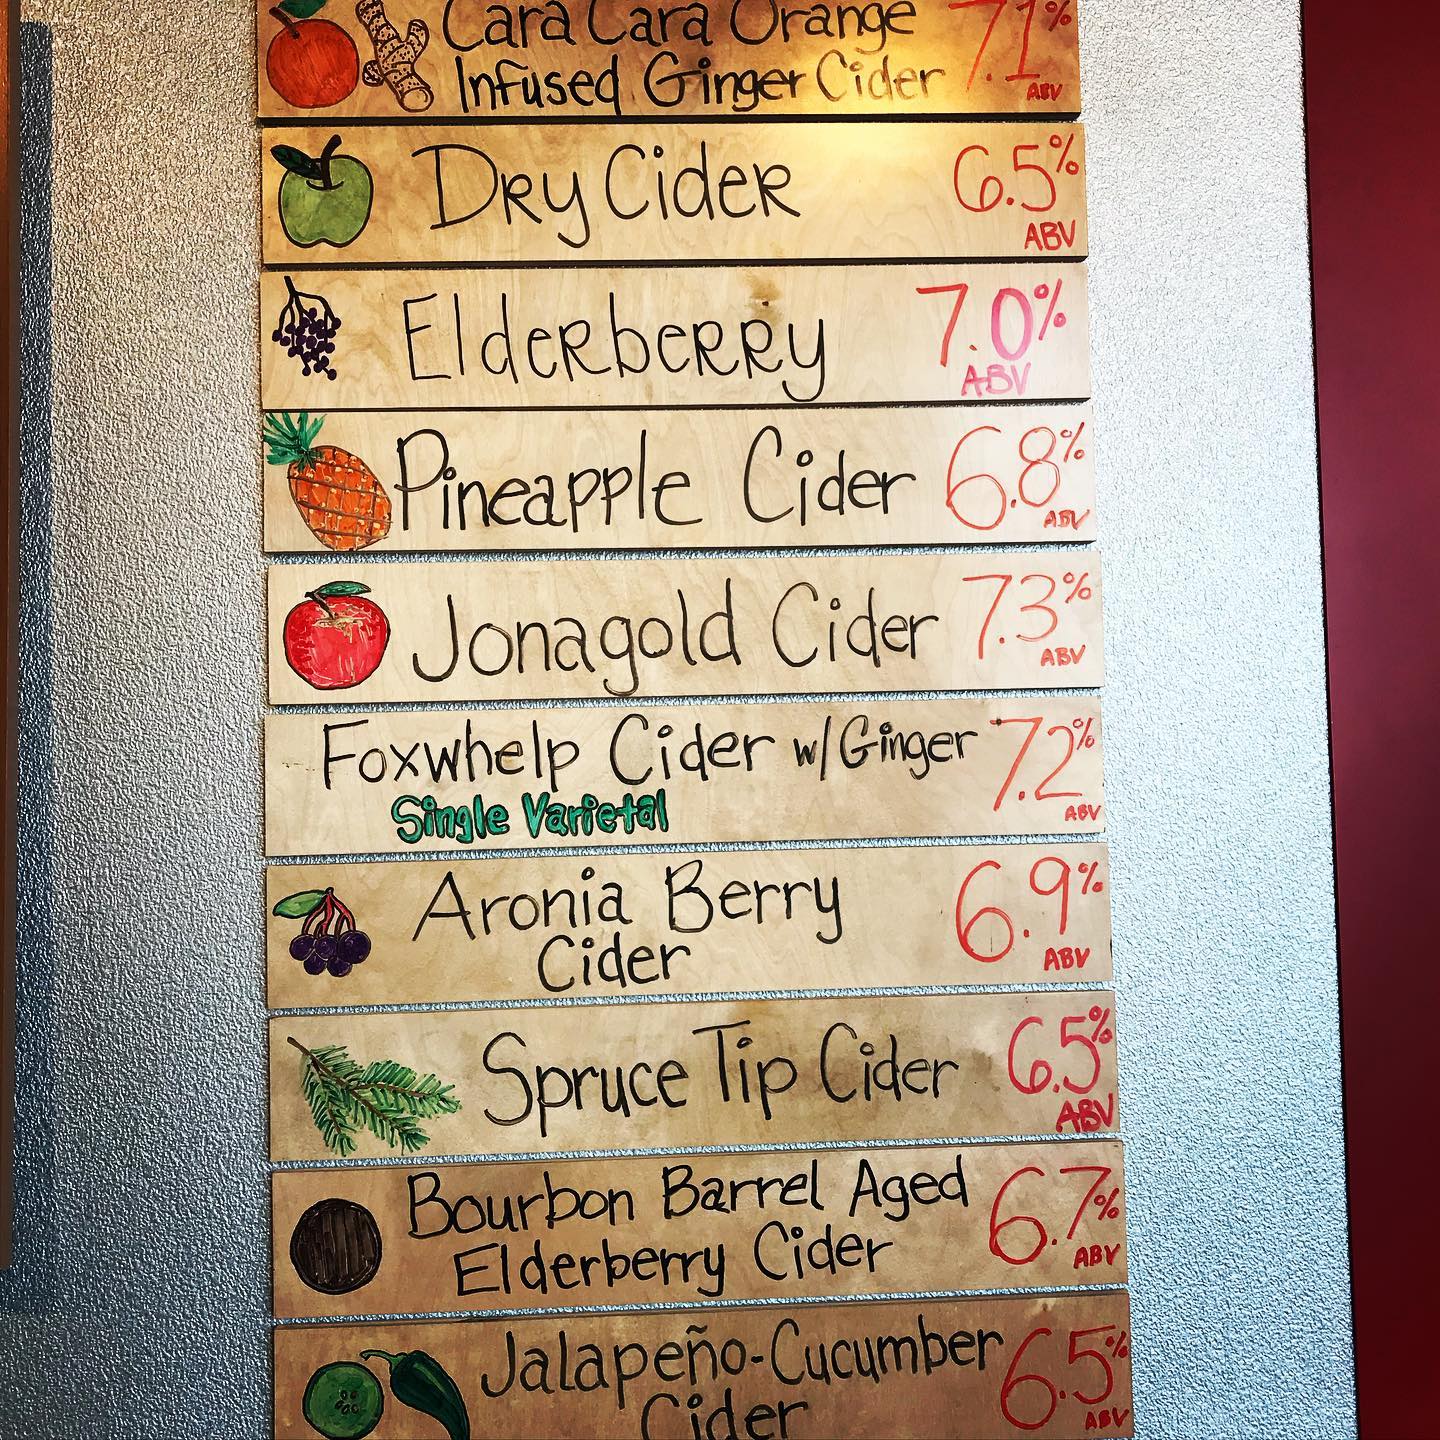 Cara Cara Orange 7.1%
Infused Ginger Cider ABV
Dry Cider 6.5%
ABV
Elderberry 7.0%
ABV
Pineapple Cider 6.8%
ABV
Jonagold Cider 7.3%
ABV
Foxwhelp Cider w/Ginger 7.2%
Single Varietal ABV
Aronia Berry 6.9%
Cider ABV
Spruce Tip Cider 6.5%
ABV
Bourbon Barrel Aged 6.7%
Elderberry Cider ABV
Jalapeño-Cucumber 6.5%
Cider ABV